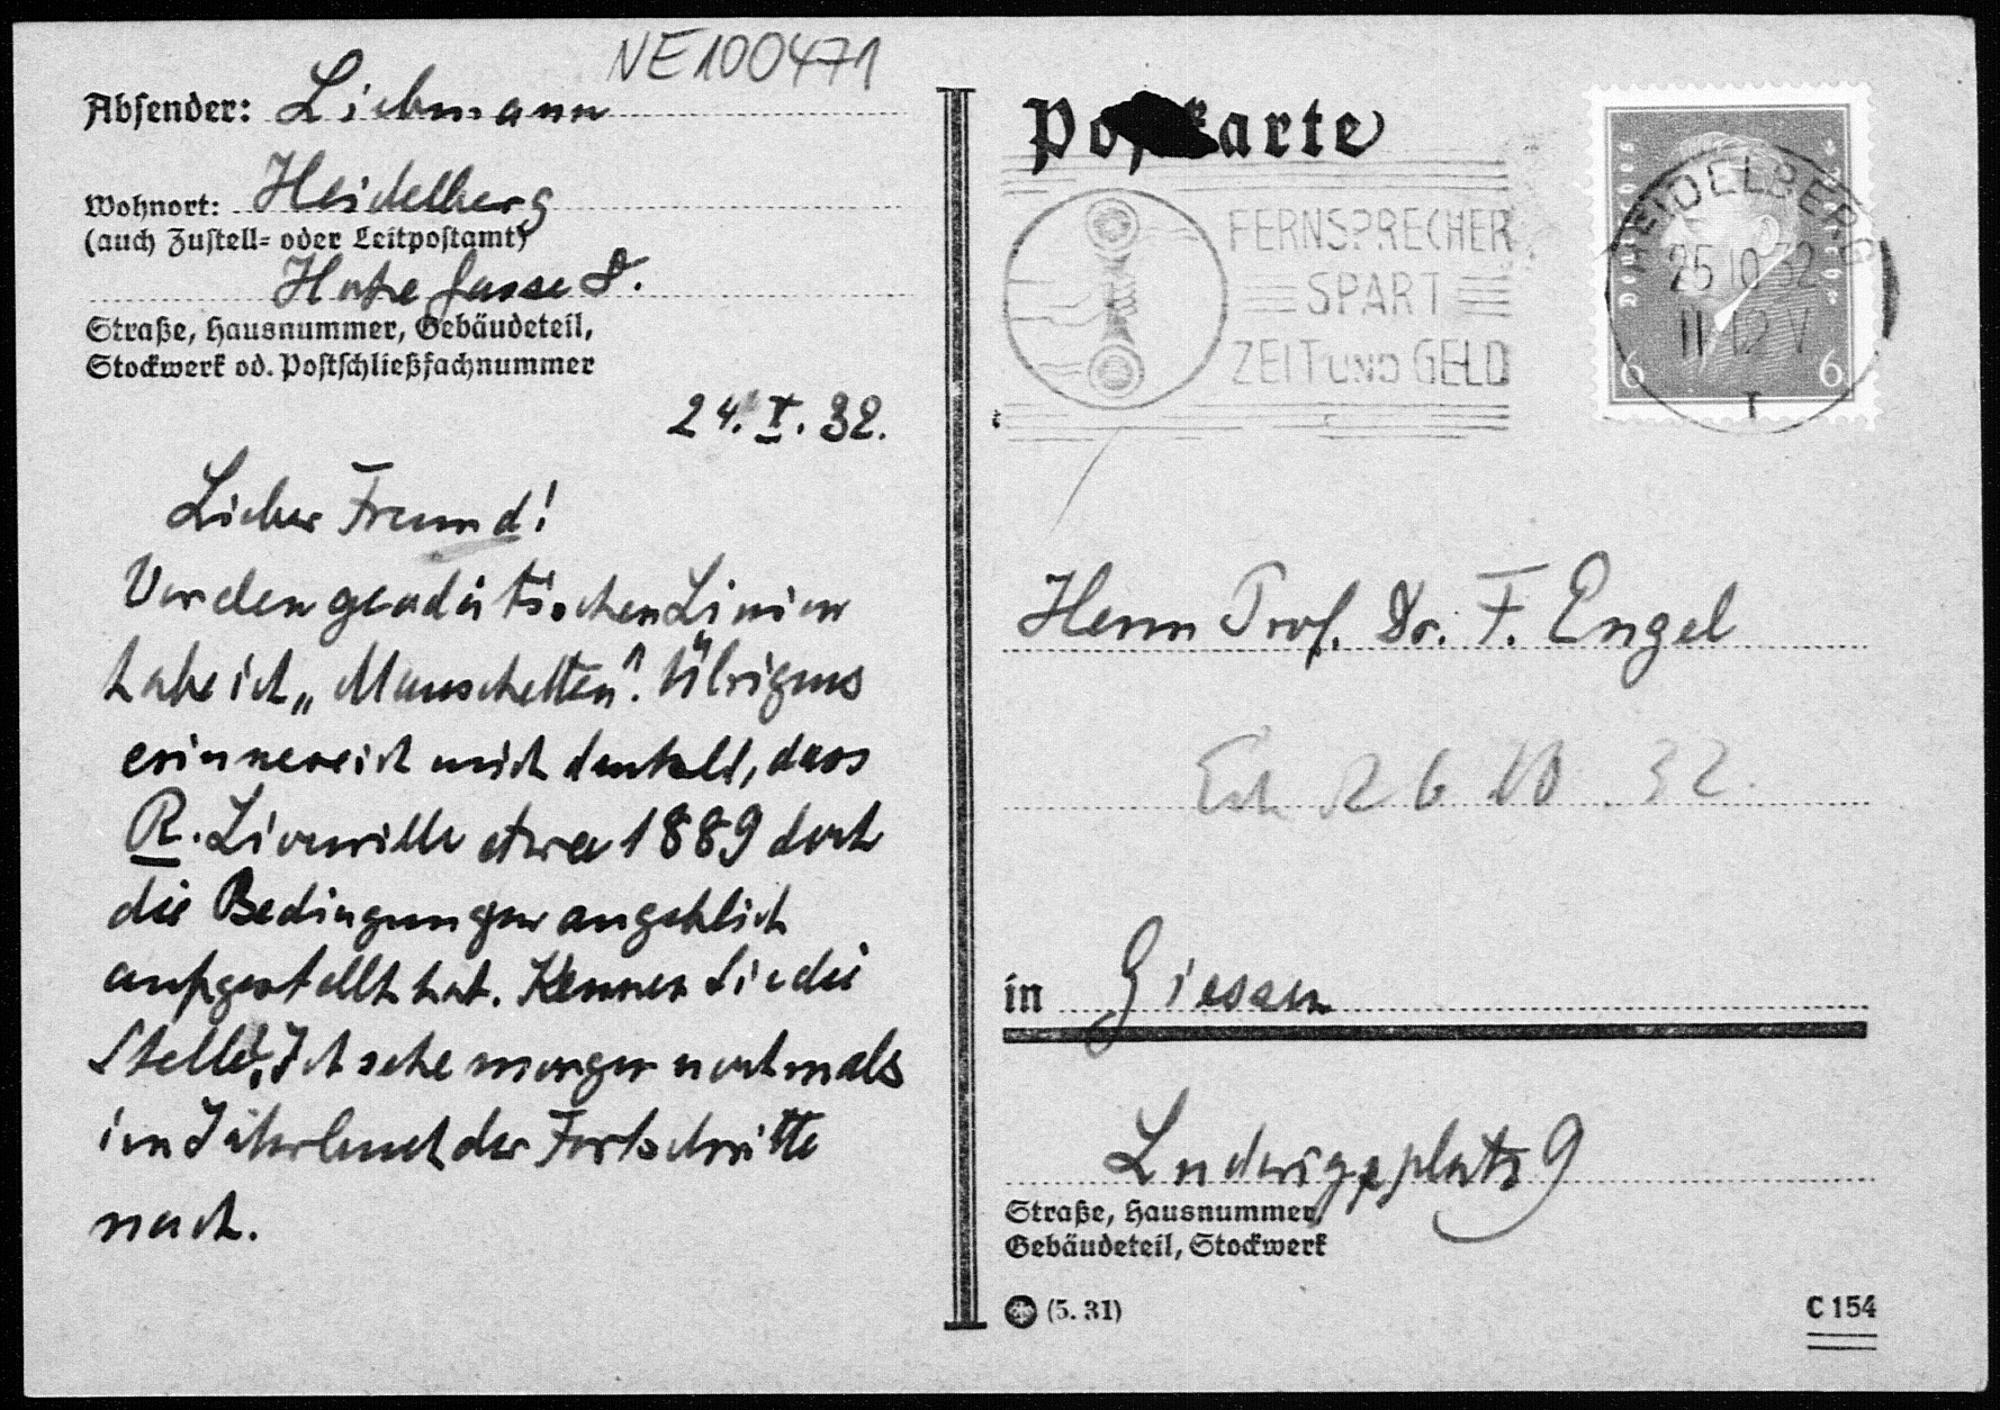 NE100471
Absender: Liebmann
Wohnort: Heidelberg
(auch Zustell- oder Leitpostamt)
Straße, Hausnummer, Gebäudeteil,
Stockwerk od. Postschließfachnummer
24. X. 32.
Lieber Freund!
Vor den geodätischen Linien
habe ich „Manschetten". Übrigens
erinnere ich mich dunkel, dass
R. Liouville etwa 1889 doch
die Bedingungen angeblich
aufgestellt hat. Kennen Sie die
Stelle? Ich sehe morgen nochmals
im Jahrbuch der Fortschritte
nach.
Postkarte
FERNSPRECHER
SPART
ZEIT UND GELD
Deutsches Reich
HEIDELBERG
25 10 32
11-12 V
6 6
Herrn Prof. Dr. F. Engel
26 10. 32.
in Giessen
Ludwigsplatz 9
Straße, Hausnummer,
Gebäudeteil, Stockwerk
(5. 31)
C 154